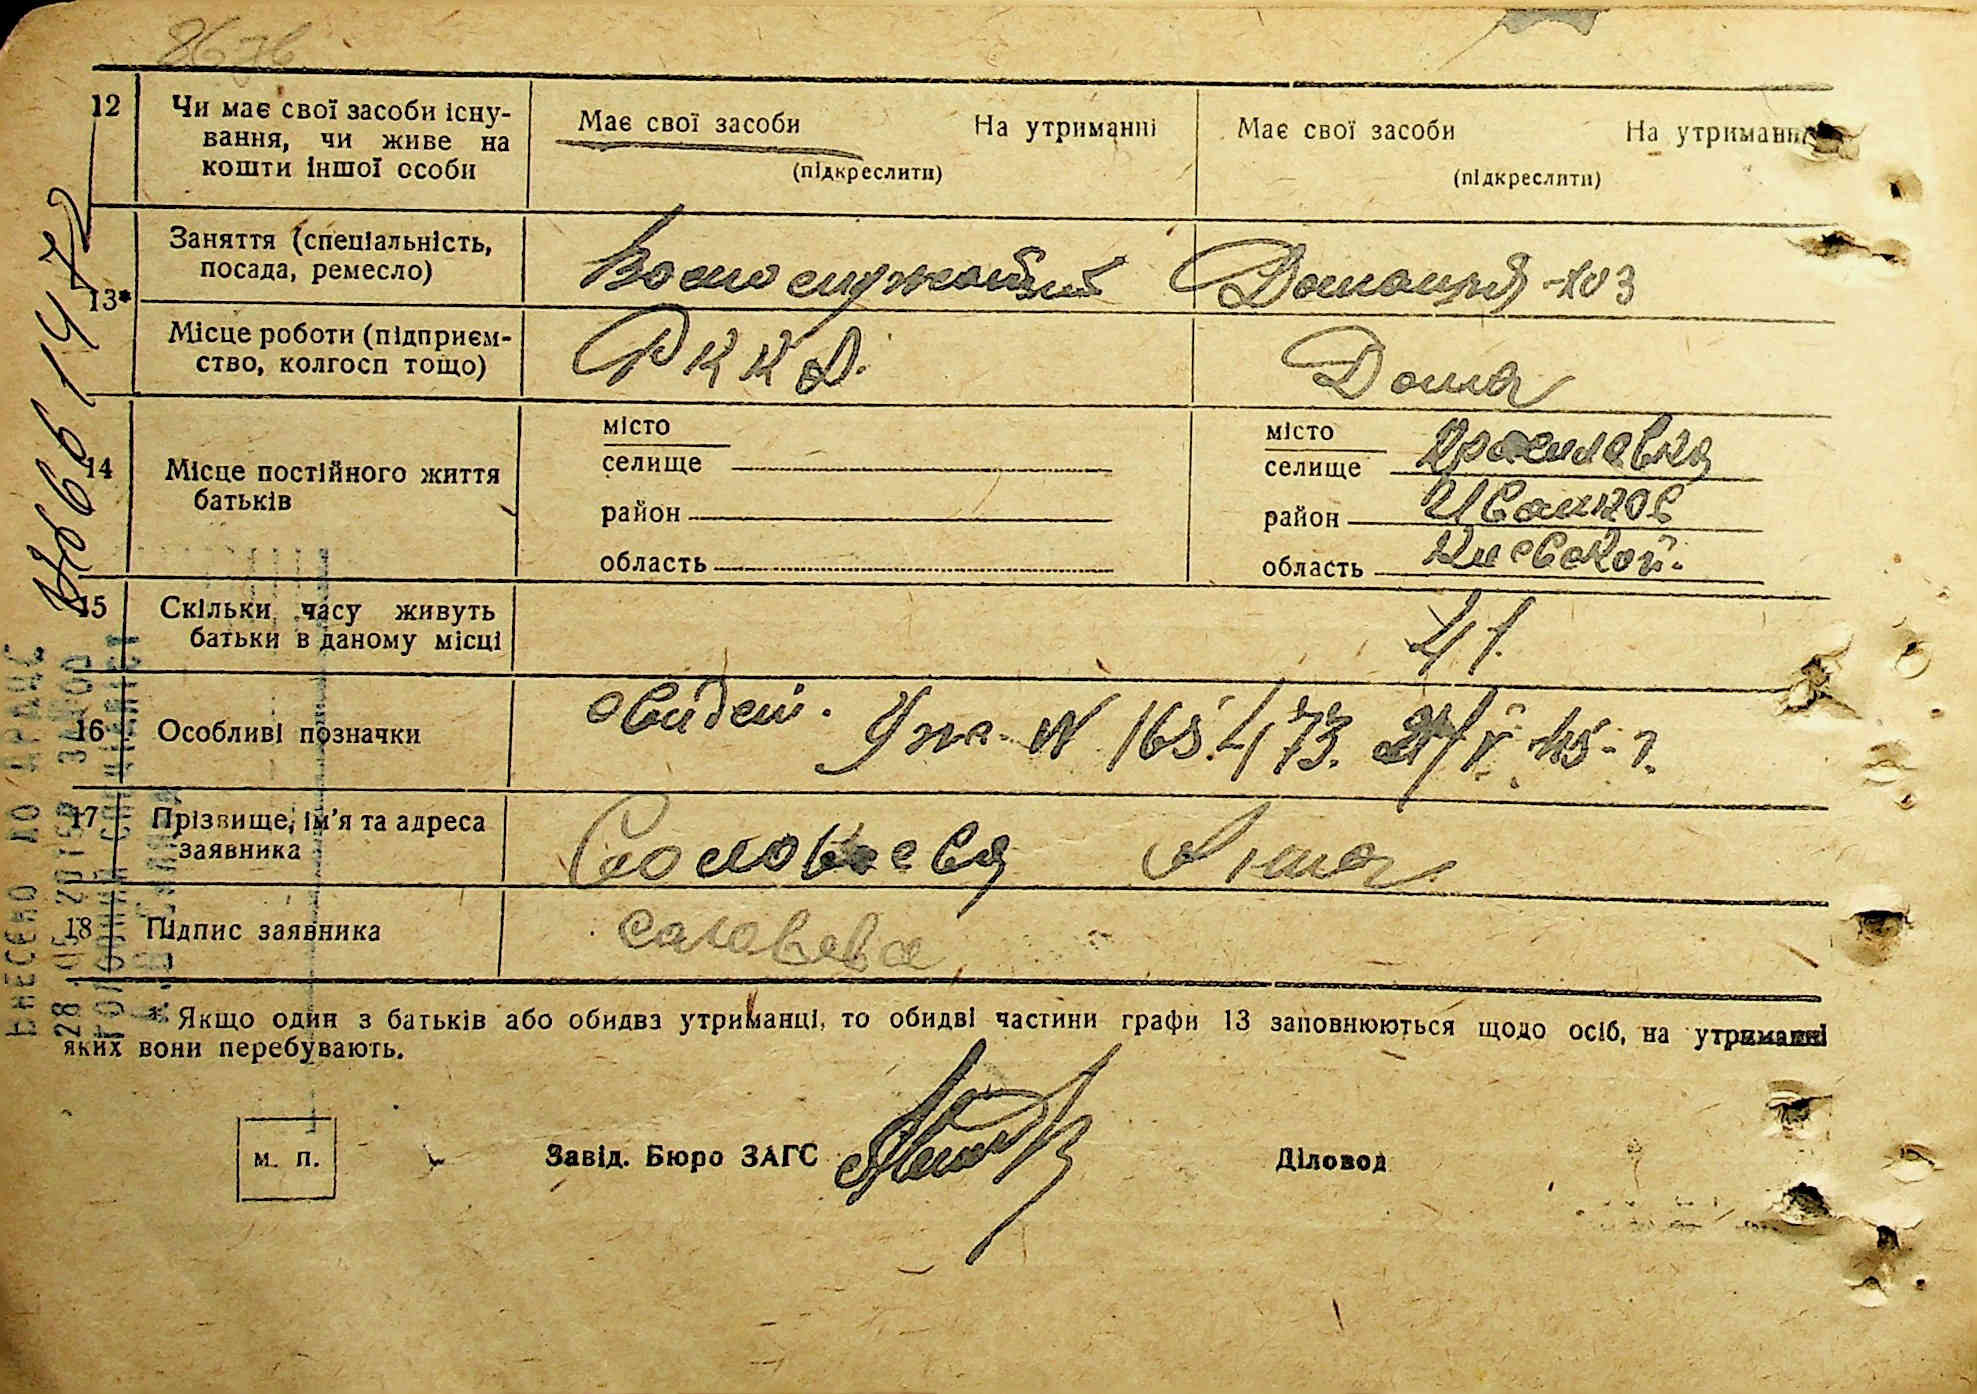 8676
12 Чи має свої засоби існу-
вання, чи живе на
кошти іншої особи
Має свої засоби На утриманні
(підкреслити)
Має свої засоби На утриманні
(підкреслити)
13* Заняття (спеціальність,
посада, ремесло)
Военнослужащий
Домашн. хоз
Місце роботи (підприєм-
ство, колгосп тощо)
РККА.
Дома
14 Місце постійного життя
батьків
місто
селище
район
область
місто
селище
район Иванков
область Киевской.
15 Скільки часу живуть
батьки в даному місці
16 Особливі позначки
свидет. N 165.473. V 45-г.
17 Прізвище, ім'я та адреса
заявника
Соловьева Анна
18 Підпис заявника
Соловьева
* Якщо один з батьків або обидвз утриманці, то обидві частини графи 13 заповнюються щодо осіб, на утриманні
яких вони перебувають.
м. п.
Завід. Бюро ЗАГС
Діловод
ВНЕСЕНО ДО ДРАЦС